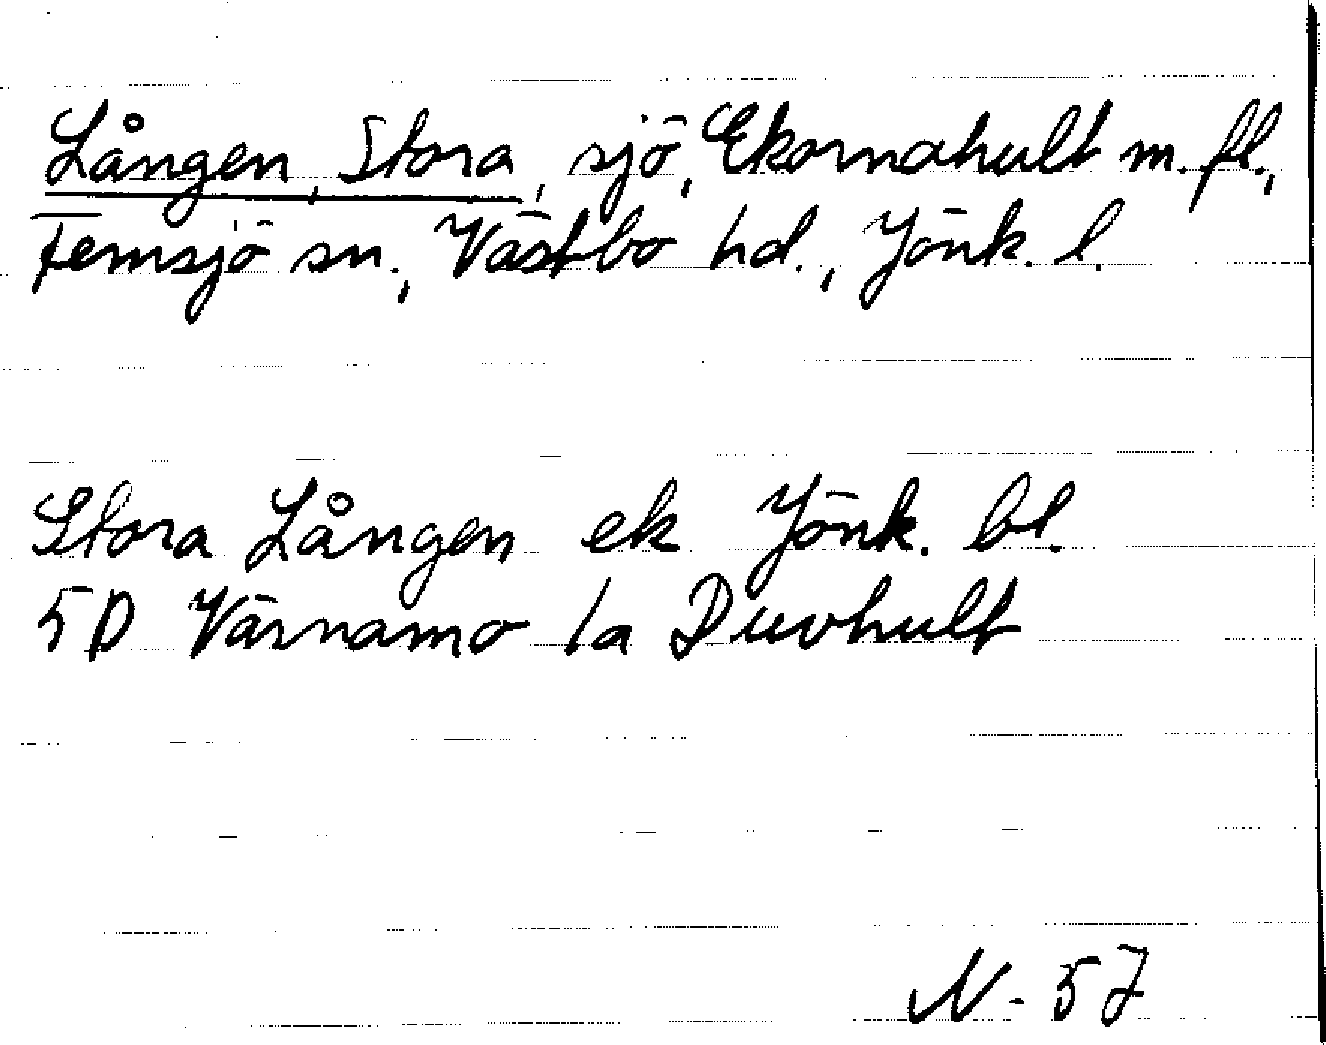 Lången, Stora, sjö, Ekornahult m. fl.,
Femsjö sn., Västbo hd., Jönk. l.
Stora Lången ek Jönk. bl.
5D Värnamo 1a Duvhult
N-57